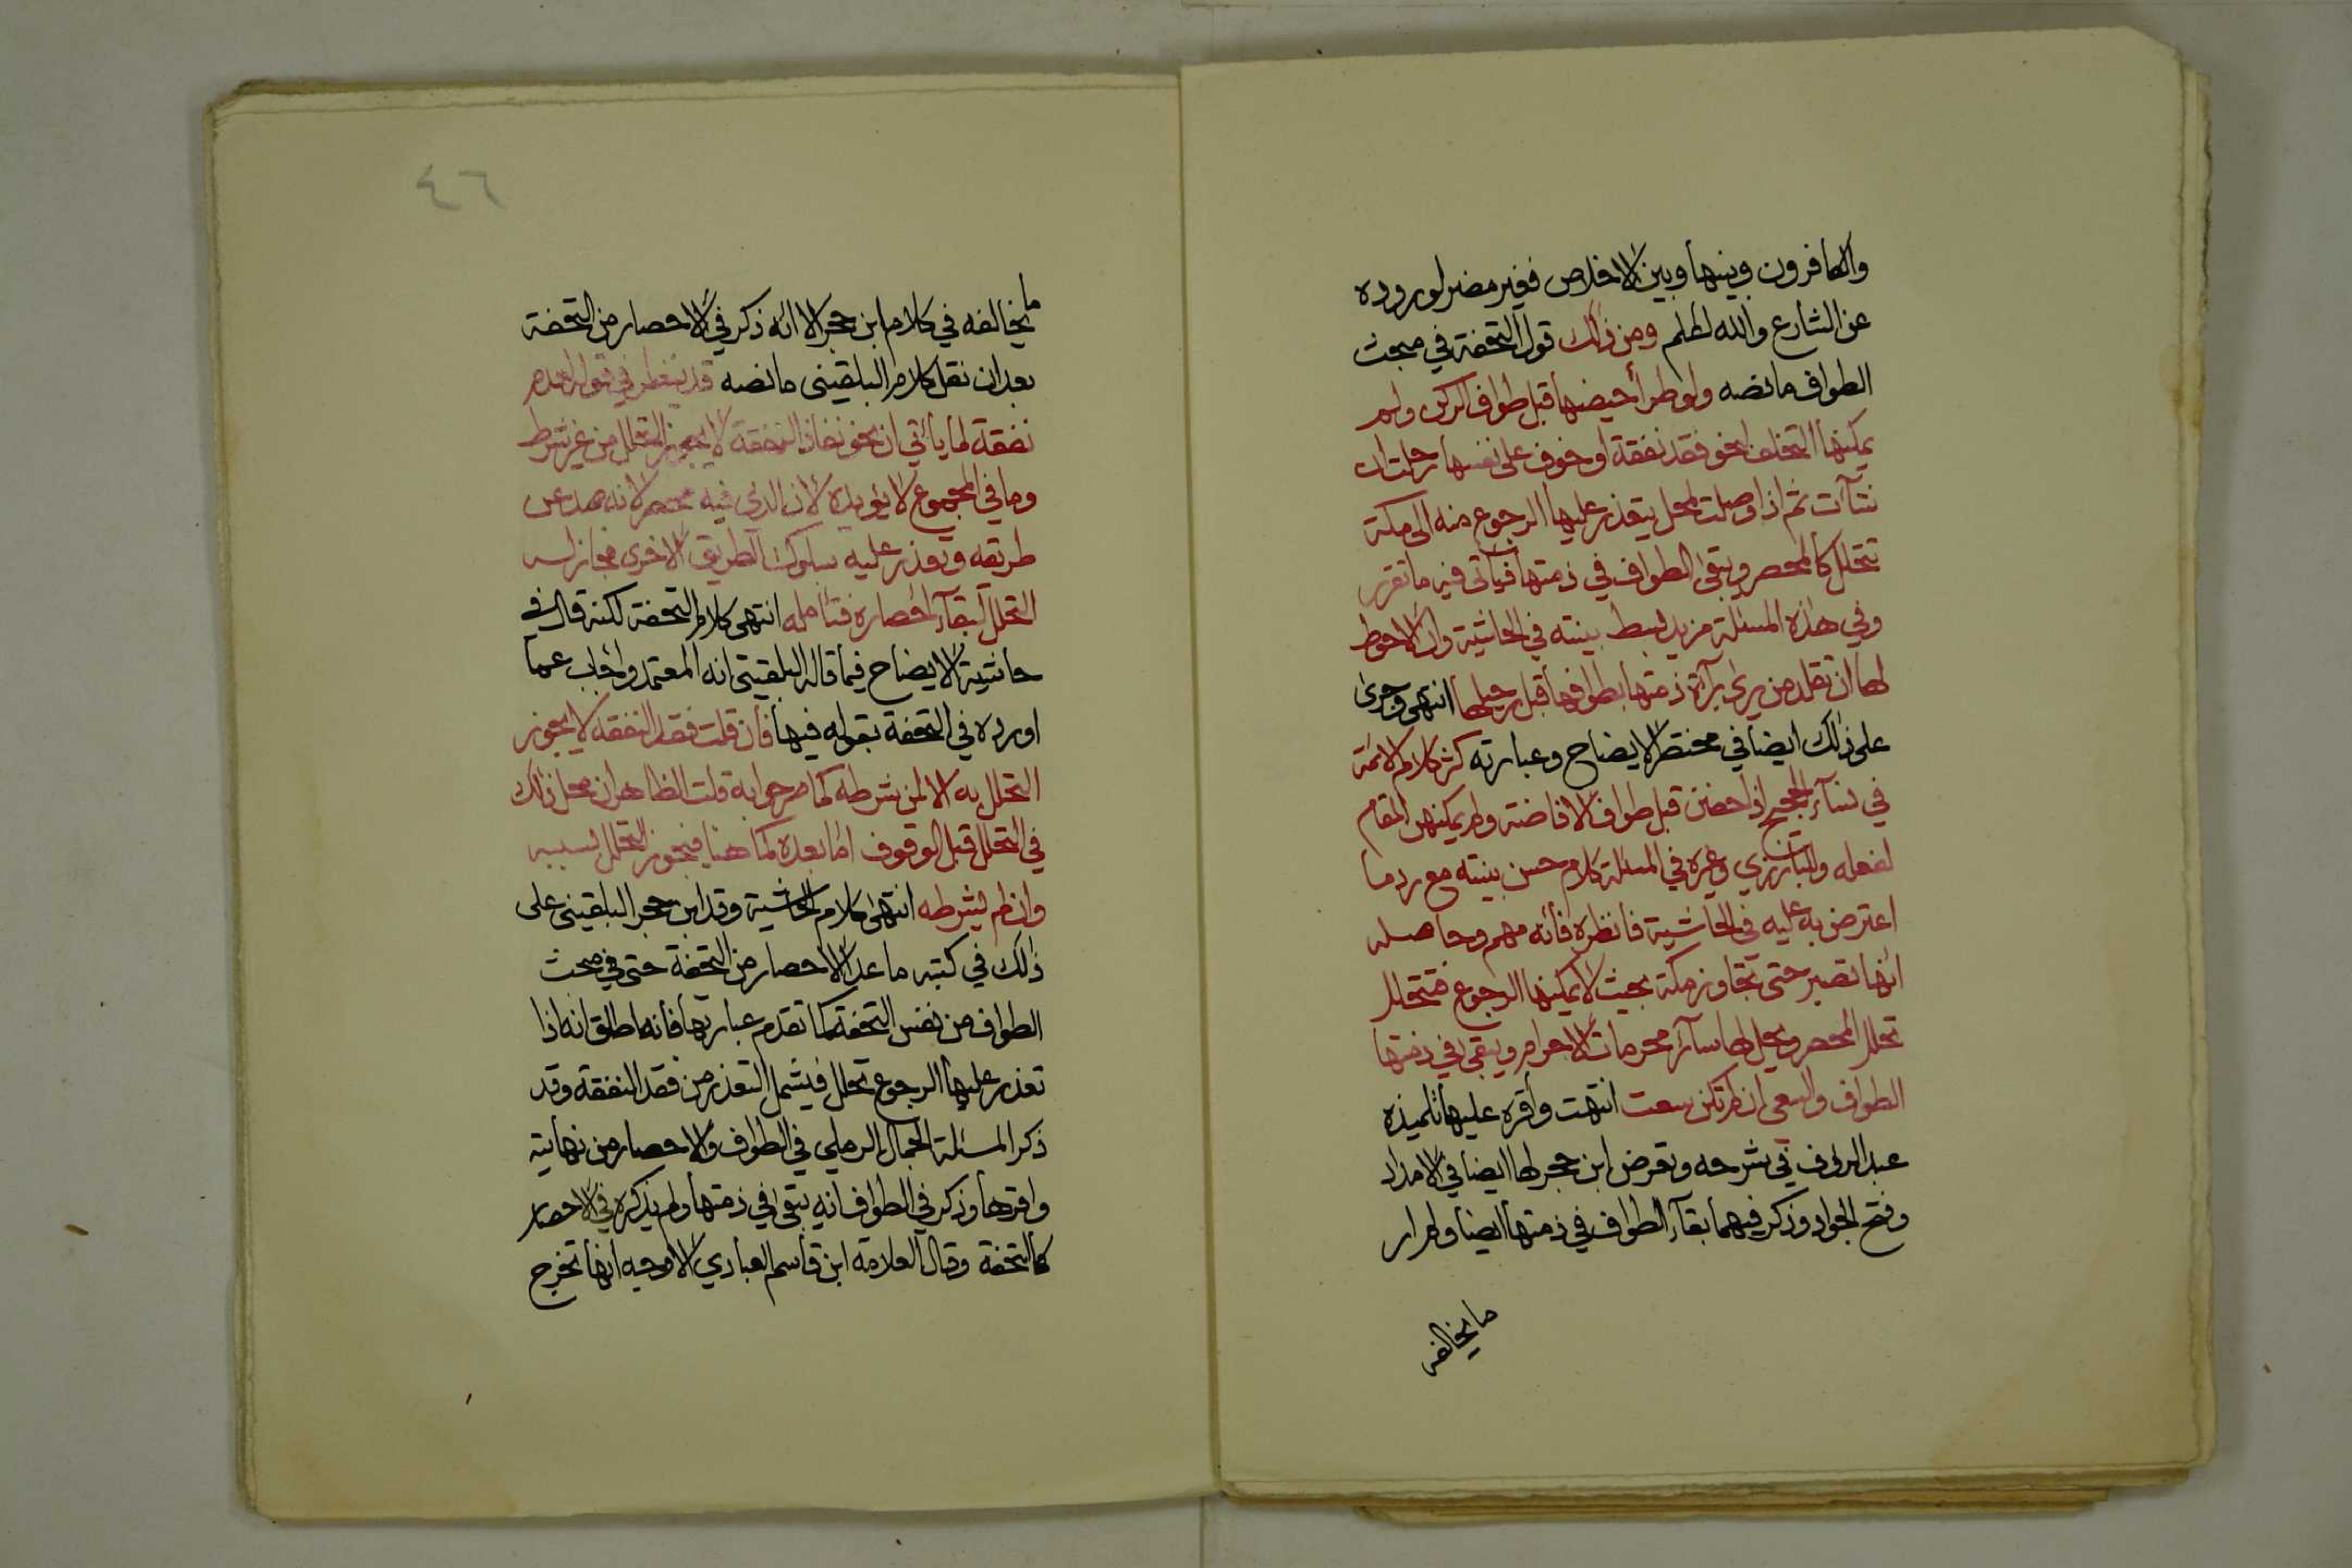 والكافرون وبينها وبين الاخلاص فغير مضر لوروده
عن الشارع والله اعلم ومن ذلك قول التحفة في مبحث
الطواف ما نصه ولو طرأ حيضها قبل طواف الركن ولم
يمكنها التخلف لنحو فقد نفقة او خوف على نفسها رحلت ان
شآءت ثم اذا وصلت لمحل يتعذر عليها الرجوع منه الى مكة
تتحلل كالمحصر ويبقى الطواف في ذمتها فيأتي فيه ما تقرر
وفي هذه المسئلة مزيد بسط بينته في الحاشية وان الاحوط
لها ان تقلد من يرى برآءة ذمتها بطوافها قبل رحيلها انتهى وجرى
على ذلك ايضا في مختصر الايضاح وعبارته كثر كلام الائمة
في نسآء الحجيج اذا حضن قبل طواف الافاضة ولم يمكنهن المقام
لفعله وللبارزي وغيره في المسئلة كلام حسن بينته مع رد ما
اعترض به عليه في الحاشية فانظره فأنه مهم وحاصله
انها تصبر حتى تجاوز مكة بحيث لا يمكنها الرجوع فتتحلل
تحلل المحصر ويحل لها سآئر محرمات الاحرام ويبقى في ذمتها
الطواف والسعي ان لم تكن سعت انتهت وأقره عليها تلميذه
عبد الرؤف في شرحه وتعرض ابن حجر لها ايضا في الامداد
وفتح الجواد وذكر فيهما بقآء الطواف في ذمتها ايضا ولم ار
ما يخالفه
٤٦
ما يخالفه في كلام ابن حجر الا انه ذكر في الاحصار من التحفة
بعد ان نقل كلام البلقيني ما نصه قد ينظر في قوله لعدم
نفقة لما يأتي ان نحو نفاذ النفقة لا يجوز التحلل من غير شرط
وما في المجموع لا يؤيده لان الذي فيه محصر لانه صد عن
طريقه وتعذر عليه سلوك الطريق الاخرى فجاز له
التحلل لبقآء احصاره فتأمله انتهى كلام التحفة لكنه قال في
حاشية الايضاح فيما قاله البلقيني انه المعتمد واجاب عما
اورده في التحفة بقوله فيها فأن قلت فقد النفقة لا يجوز
التحلل به الا لمن شرطه كما مر جوابه قلت الظاهر ان محل ذلك
في التحلل قبل الوقوف اما بعده كما هنا فيجوز التحلل بسببه
وان لم يشرطه انتهى كلام الحاشية وقد ابن حجر البلقيني على
ذلك في كتبه ما عدا الاحصار من التحفة حتى في مبحث
الطواف من نفس التحفة كما تقدم عبارتها فأنه اطلق انه اذا
تعذر عليها الرجوع تحلل فيشمل التعذر من فقد النفقة وقد
ذكر المسئلة الجمال الرملي في الطواف والاحصار من نهايته
واقرها وذكر في الطواف انه يبقى في ذمتها ولم يذكره في الاحصار
كالتحفة وقال العلامة ابن قاسم العبادي الاوجه انها تخرج